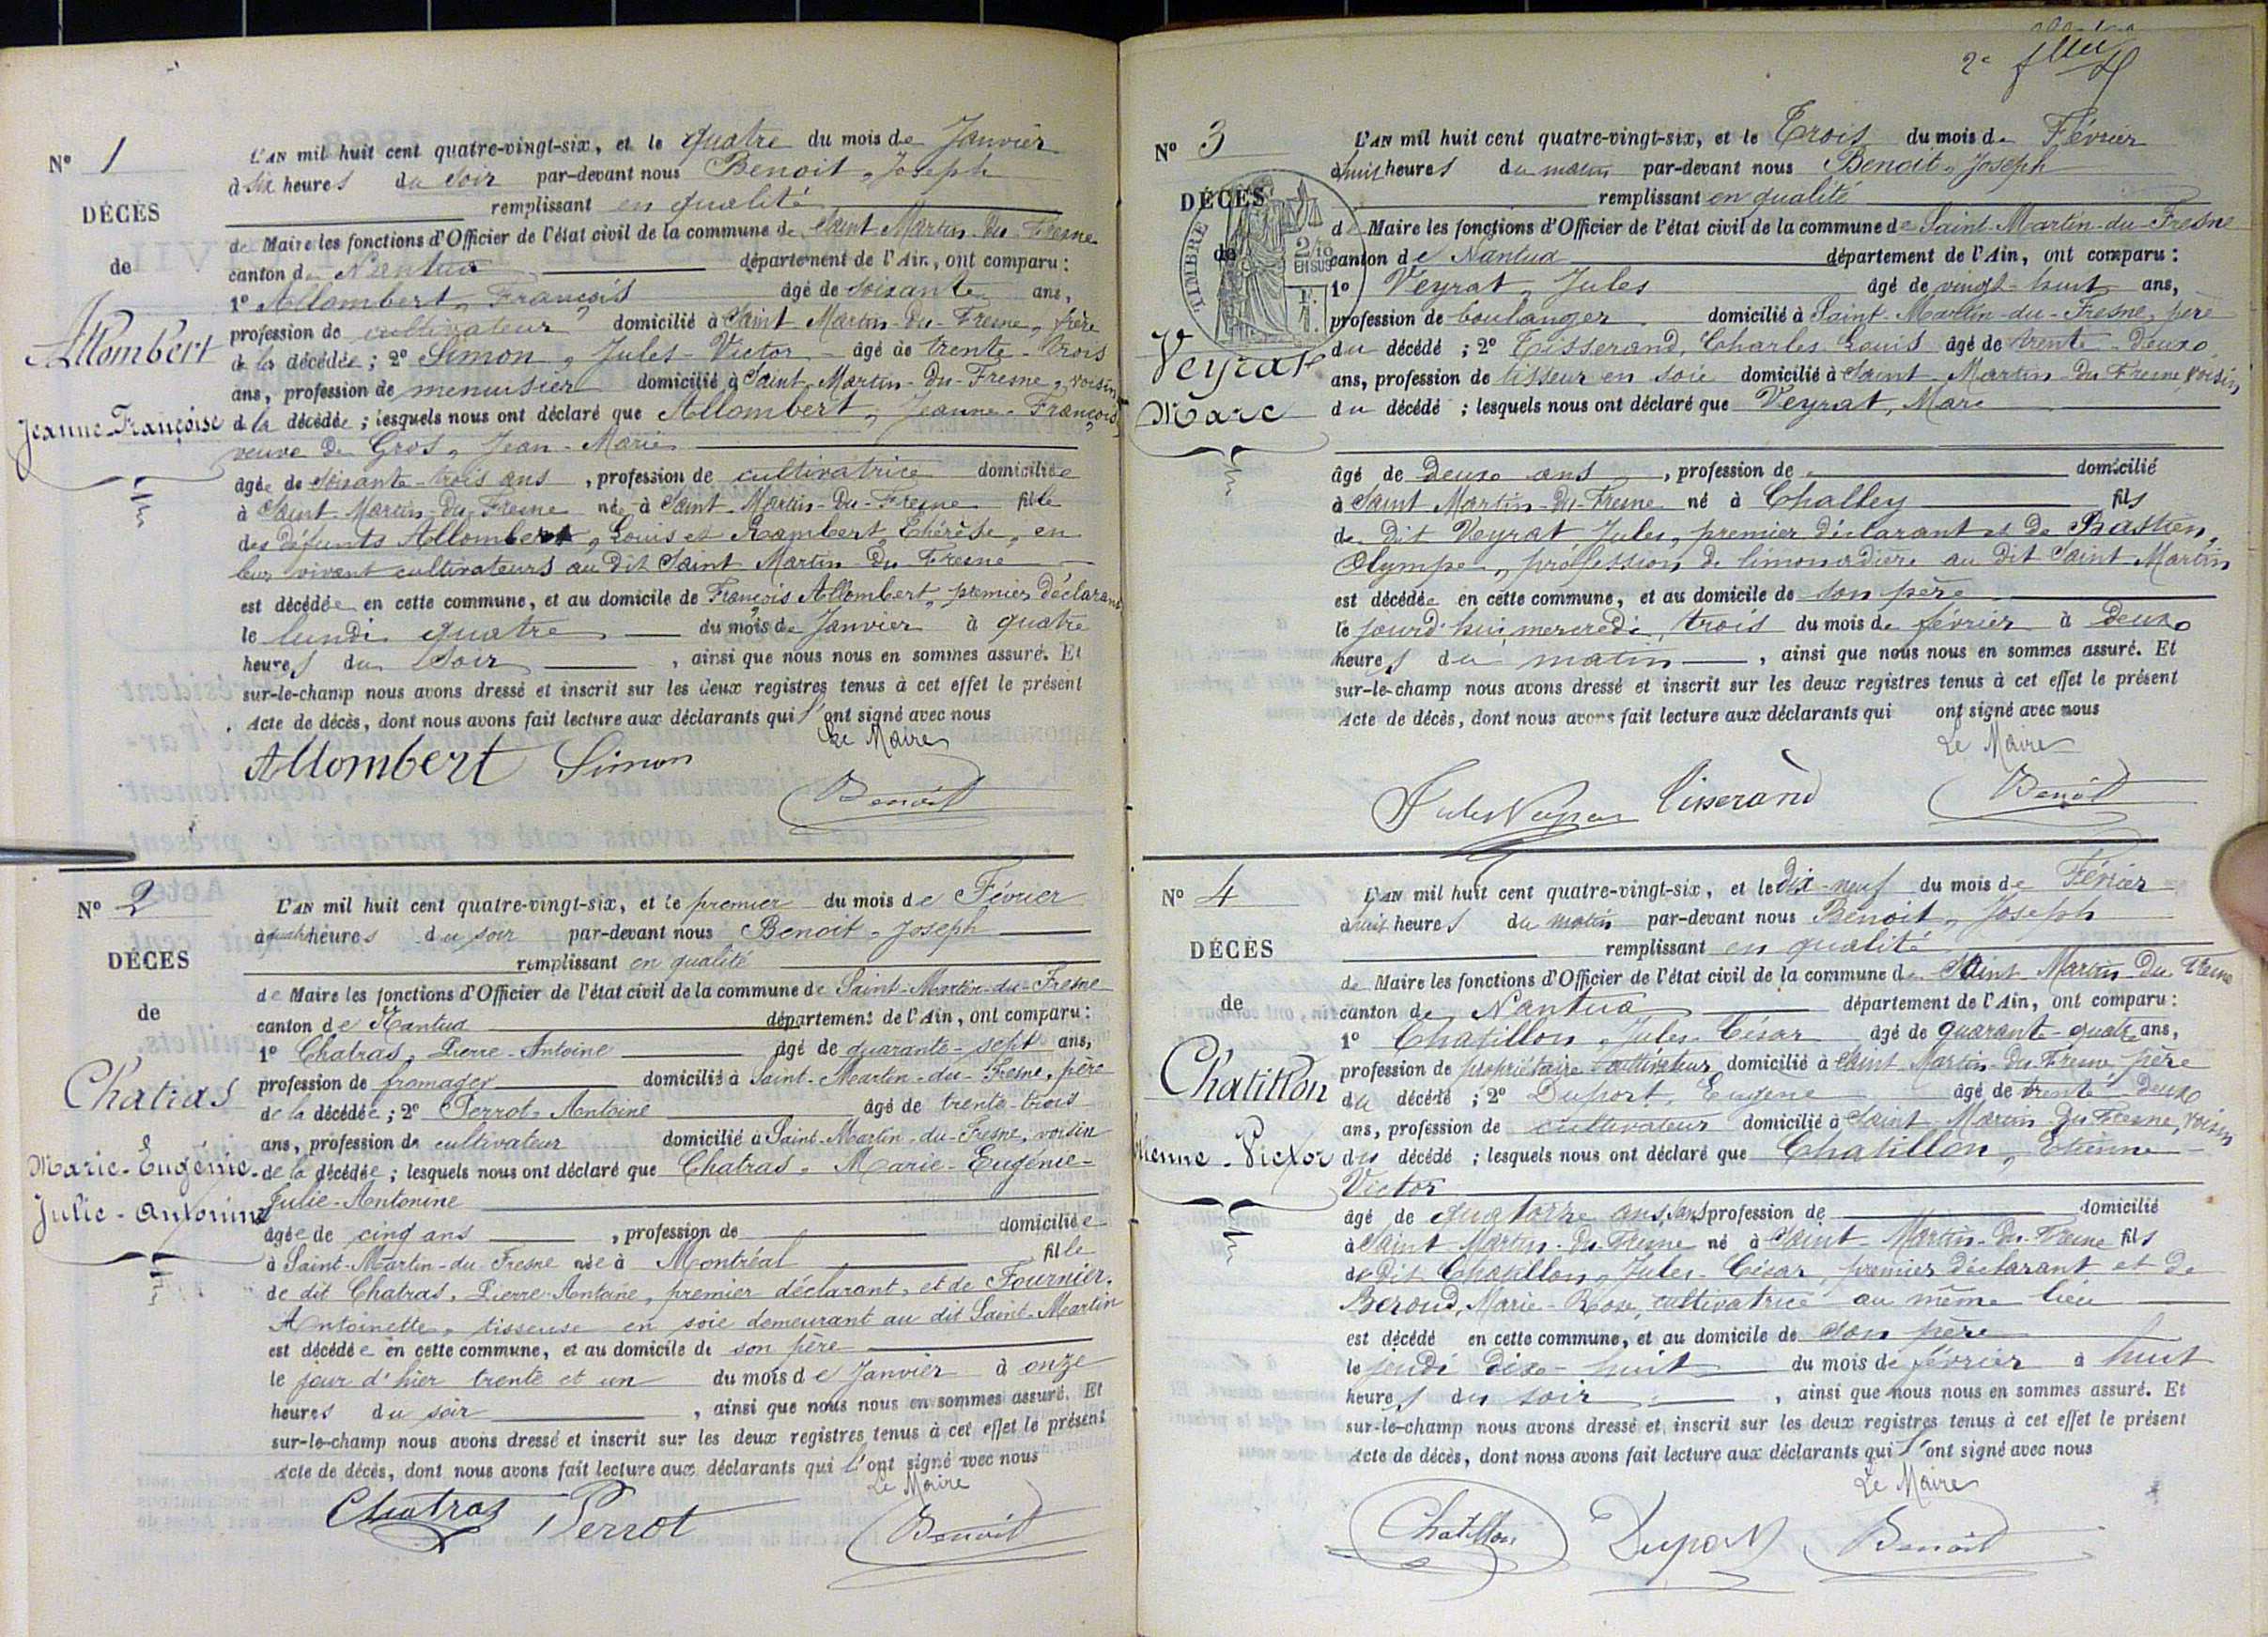 N° 1
DÉCÈS
de
Allombert
Jeanne-Françoise
L'AN mil huit cent quatre-vingt-six, et le quatre du mois de Janvier
à six heures du soir par-devant nous Benoit, Joseph
remplissant en qualité
de Maire les fonctions d'Officier de l'état civil de la commune de Saint Martin-du-Fresne
canton de Nantua département de l'Ain, ont comparu :
1° Allombert, François âgé de soixante ans,
profession de cultivateur domicilié à Saint Martin-du-Fresne, frère
de la décédée ; 2° Simon, Jules-Victor âgé de trente-trois
ans, profession de menuisier domicilié à Saint Martin-du-Fresne, voisin
de la décédée ; lesquels nous ont déclaré que Allombert, Jeanne-Françoise,
veuve de Gros, Jean-Marie
âgée de soixante-trois ans , profession de cultivatrice domiciliée
à Saint Martin-du-Fresne née à Saint Martin-du-Fresne fille
des défunts Allombert, Louis et Rambert, Thérèse, en
leur vivant cultivateurs au dit Saint Martin-du-Fresne
est décédée en cette commune, et au domicile de François Allombert, premier déclarant
le lundi quatre du mois de Janvier à quatre
heures du soir , ainsi que nous nous en sommes assuré. Et
sur-le-champ nous avons dressé et inscrit sur les deux registres tenus à cet effet le présent
Acte de décès, dont nous avons fait lecture aux déclarants qui l'ont signé avec nous
Le Maire
Allombert Simon
Benoit
N° 2
DÉCÈS
de
Chatras
Marie-Eugénie-
Julie-Antonine
L'AN mil huit cent quatre-vingt-six, et le premier du mois de Février
à quatre heures du soir par-devant nous Benoit, Joseph
remplissant en qualité
de Maire les fonctions d'Officier de l'état civil de la commune de Saint-Martin-du-Fresne
canton de Nantua département de l'Ain, ont comparu :
1° Chatras, Pierre-Antoine âgé de quarante-sept ans,
profession de fromager domicilié à Saint-Martin-du-Fresne, père
de la décédée ; 2° Perrot, Antoine âgé de trente-trois
ans, profession de cultivateur domicilié à Saint-Martin-du-Fresne, voisin
de la décédée ; lesquels nous ont déclaré que Chatras, Marie-Eugénie-
Julie-Antonine
âgée de cinq ans , profession de domiciliée
à Saint-Martin-du-Fresne née à Montréal fille
de dit Chatras, Pierre-Antoine, premier déclarant, et de Fournier,
Antoinette, tisseuse en soie demeurant au dit Saint-Martin
est décédée en cette commune, et au domicile de son père
le jour d'hier trente et un du mois de Janvier à onze
heures du soir , ainsi que nous nous en sommes assuré. Et
sur-le-champ nous avons dressé et inscrit sur les deux registres tenus à cet effet le présent
Acte de décès, dont nous avons fait lecture aux déclarants qui l'ont signé avec nous
Le Maire
Chatras Perrot
Benoit
2e
N° 3
DÉCÈS
de
TIMBRE
2/10
EN SUS
Veyrat
Marc
L'AN mil huit cent quatre-vingt-six, et le Trois du mois de Février
à huit heures du matin par-devant nous Benoit, Joseph
remplissant en qualité
de Maire les fonctions d'Officier de l'état civil de la commune de Saint-Martin-du-Fresne
canton de Nantua département de l'Ain, ont comparu :
1° Veyrat, Jules âgé de vingt-huit ans,
profession de boulanger domicilié à Saint-Martin-du-Fresne, père
du décédé ; 2° Tisserand, Charles Louis âgé de trente-deux
ans, profession de tisseur en soie domicilié à Saint Martin-du-Fresne voisin,
du décédé ; lesquels nous ont déclaré que Veyrat, Marc
âgé de deux ans , profession de domicilié
à Saint Martin-du-Fresne né à Challey fils
de dit Veyrat, Jules, premier déclarant et de Bastien,
Olympe, profession de limonadière au dit Saint Martin
est décédée en cette commune, et au domicile de son père
le jourd'hui mercredi, trois du mois de février à deux
heures du matin , ainsi que nous nous en sommes assuré. Et
sur-le-champ nous avons dressé et inscrit sur les deux registres tenus à cet effet le présent
Acte de décès, dont nous avons fait lecture aux déclarants qui ont signé avec nous
Le Maire
Jules Veyrat Tisserand
Benoit
N° 4
DÉCÈS
de
Chatillon
Etienne-Victor
L'AN mil huit cent quatre-vingt-six, et le Dix-neuf du mois de Février
à huit heures du matin par-devant nous Benoit, Joseph
remplissant en qualité
de Maire les fonctions d'Officier de l'état civil de la commune de Saint Martin du Fresne
canton de Nantua département de l'Ain, ont comparu :
1° Chatillon, Jules-César âgé de quarante-quatre ans,
profession de propriétaire cultivateur domicilié à Saint Martin-du-Fresne père
du décédé ; 2° Duport, Eugène âgé de trente deux
ans, profession de cultivateur domicilié à Saint Martin du Fresne, voisin
du décédé ; lesquels nous ont déclaré que Chatillon, Etienne-
Victor
âgé de quatorze ans, sans profession de domicilié
à Saint Martin-du-Fresne né à Saint-Martin-du-Fresne fils
de dit Chatillon, Jules-César, premier déclarant et de
Beroud, Marie-Rose, cultivatrice au même lieu
est décédé en cette commune, et au domicile de son père
le jeudi dix-huit du mois de février à huit
heures du soir , ainsi que nous nous en sommes assuré. Et
sur-le-champ nous avons dressé et inscrit sur les deux registres tenus à cet effet le présent
Acte de décès, dont nous avons fait lecture aux déclarants qui l'ont signé avec nous
Le Maire
Chatillon Duport Benoit